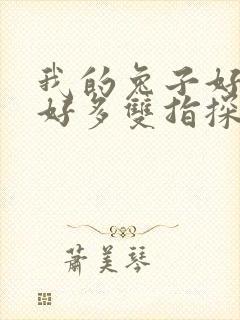 我的兔子好
好多雙指探
蕭美琴